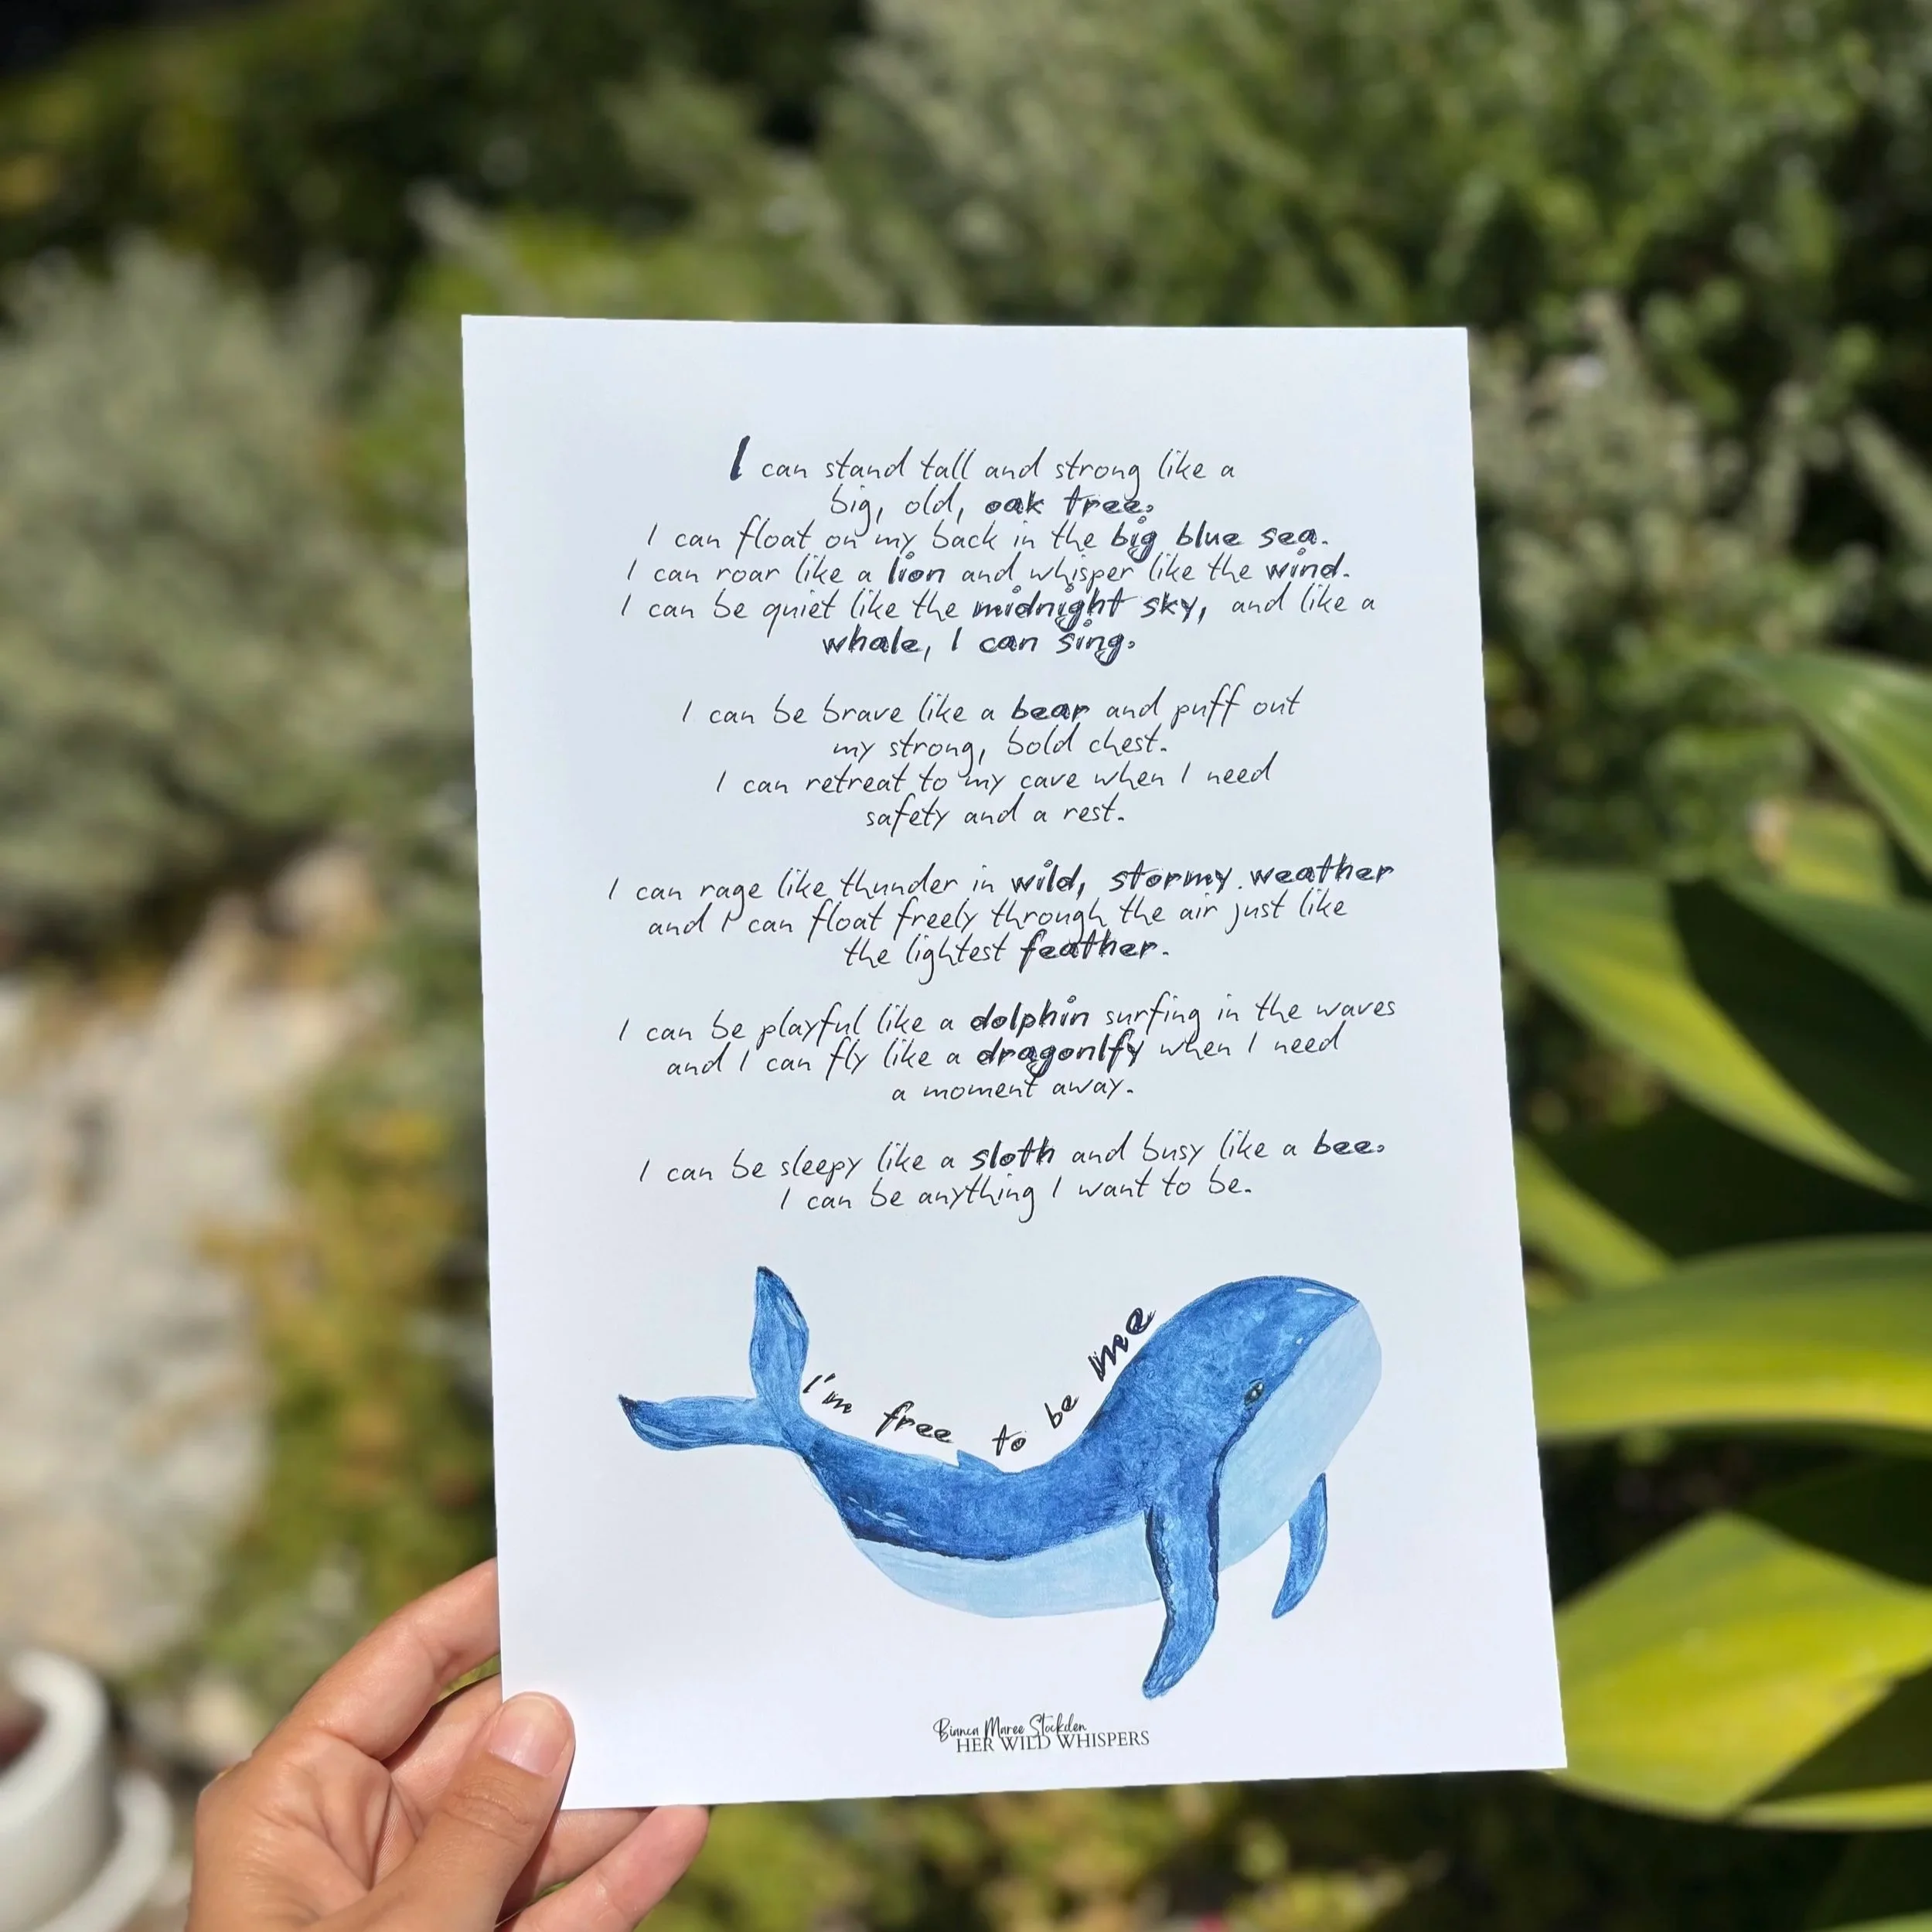 I can stand tall and strong like a
big, old, oak tree.
I can float on my back in the big blue sea.
I can roar like a lion and whisper like the wind.
I can be quiet like the midnight sky, and like a
whale, I can sing.
I can be brave like a bear and puff out
my strong, bold chest.
I can retreat to my cave when I need
safety and a rest.
I can rage like thunder in wild, stormy weather
and I can float freely through the air just like
the lightest feather.
I can be playful like a dolphin surfing in the waves
and I can fly like a dragonlfy when I need
a moment away.
I can be sleepy like a sloth and busy like a bee.
I can be anything I want to be.
I'm free to be me
Bianca Maree Stockden
HER WILD WHISPERS